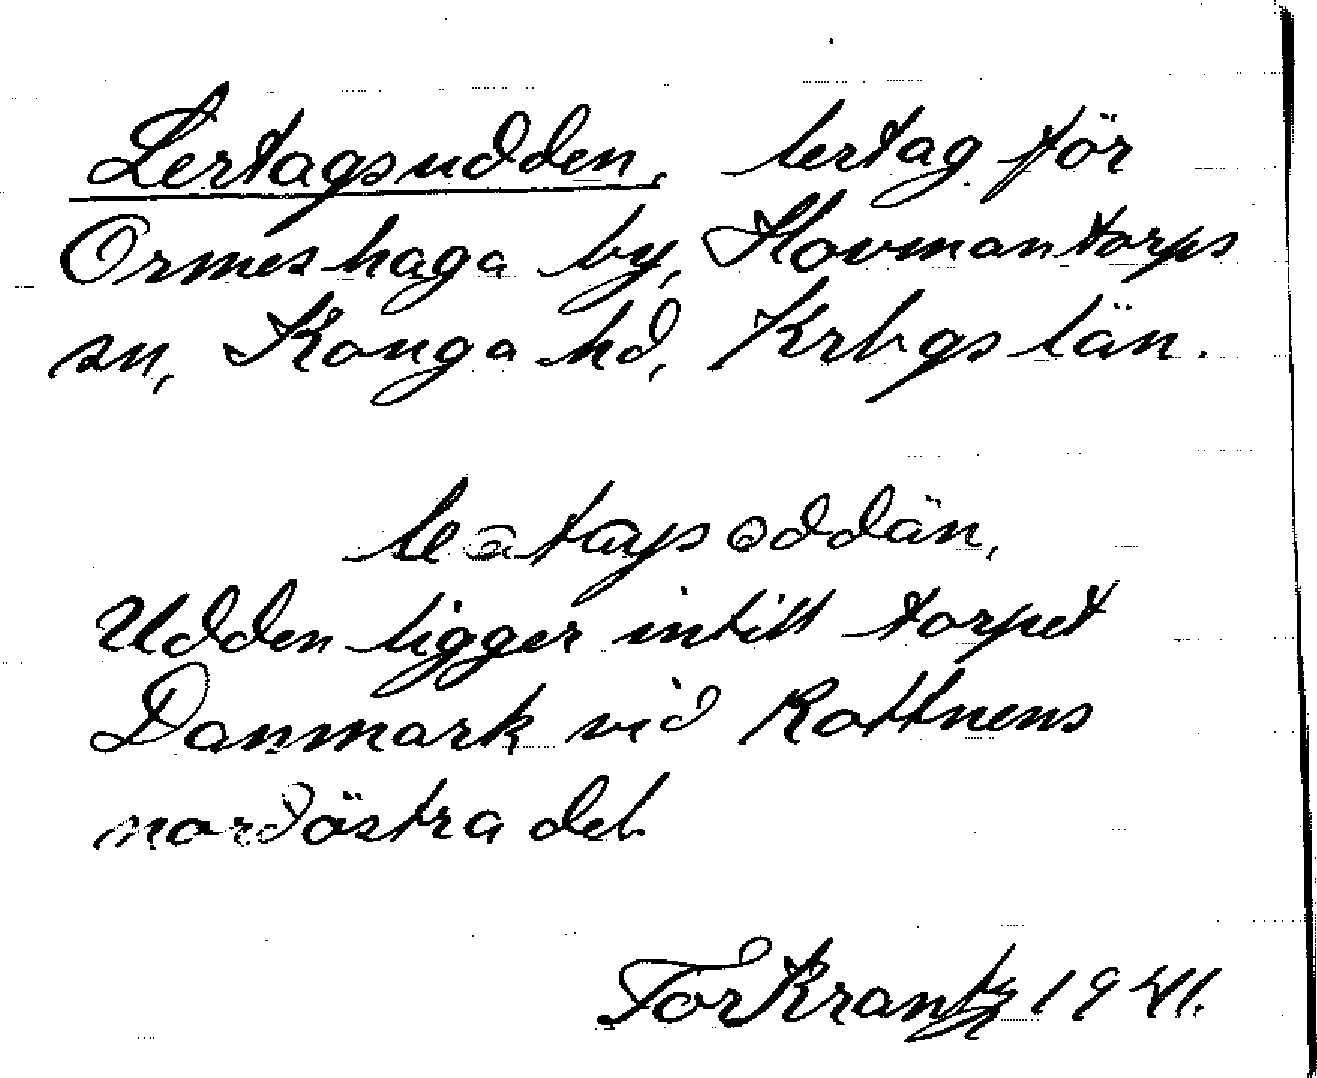 Lertagsudden, lertag för
Ormeshaga by, Hovmantorps
sn, Konga hd, Krbgs län.
Udden ligger intill torpet
Danmark vid Rottnens
nordöstra del.
Tor Krantz 1941.